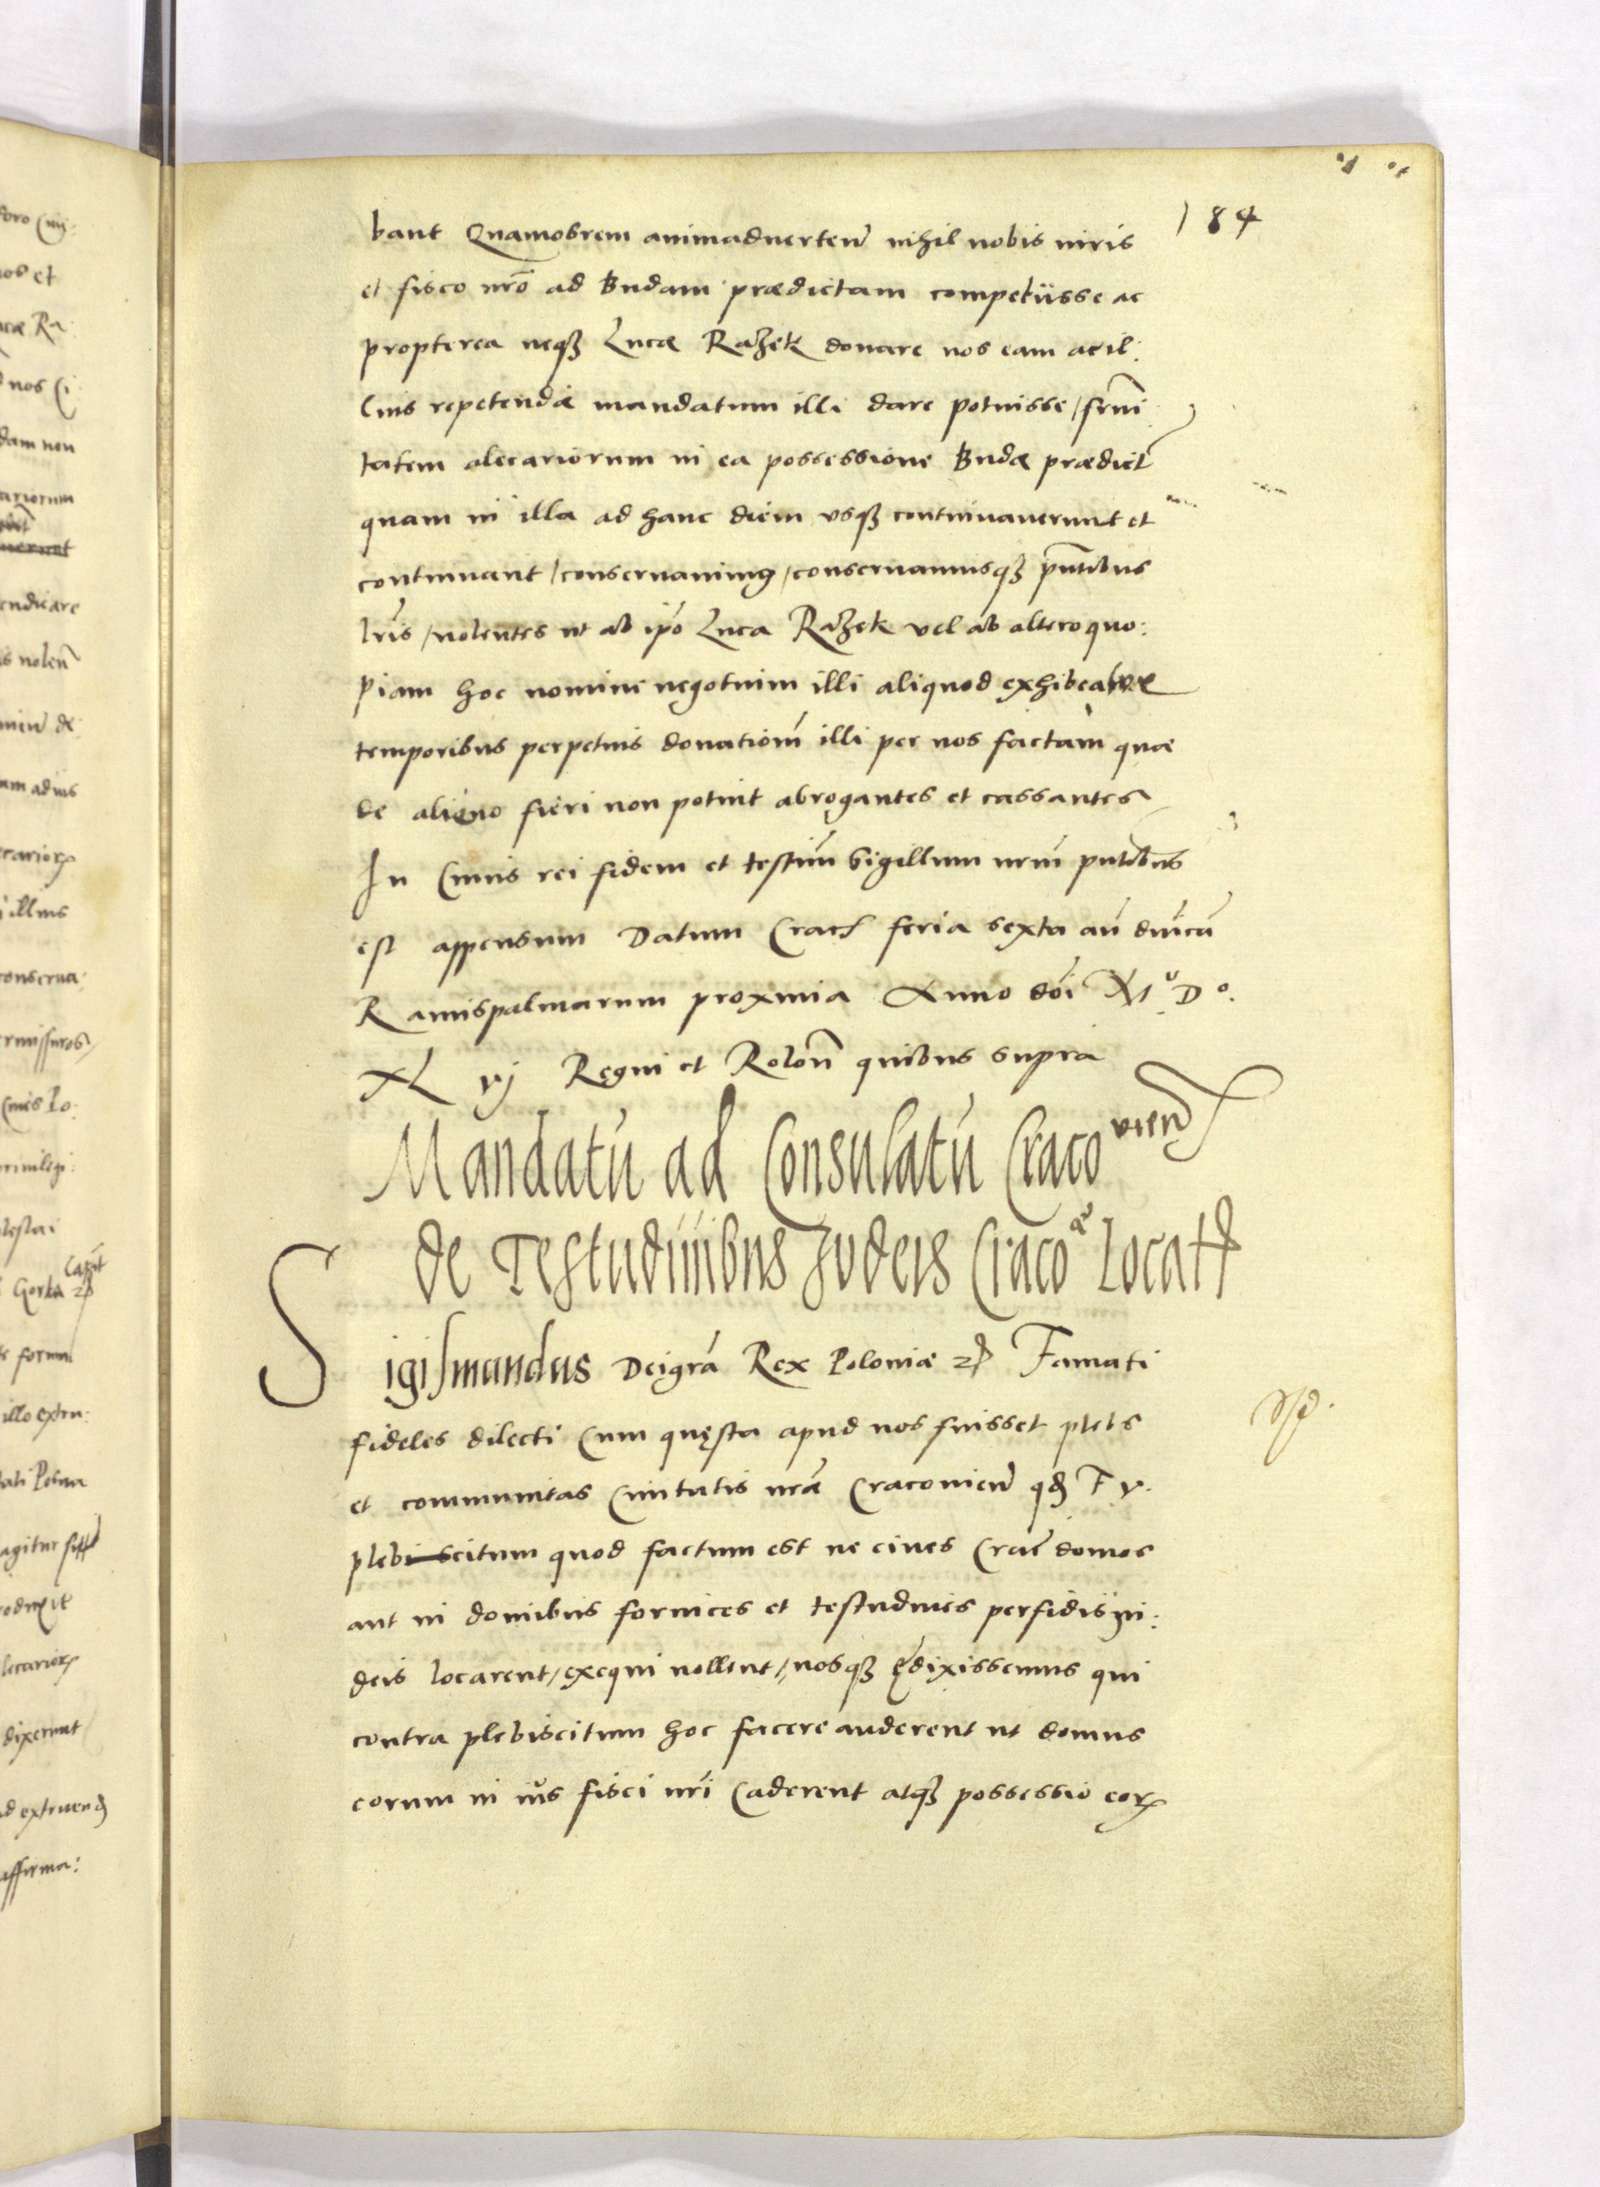 184
bant Quamobrem animaduerteñ nihil nobis iuris
et fisco nrõ ad Budam prædictam competiisse ac
propterea neqз Lucæ Razek donare nos eam ac il:
lius repetendæ mandatum illi dare potuisse /
tatem alecariorum in ea possessione Budæ prædict
quam in illa ad hanc diem vsqз continuauerunt et
continuant / conseruauimus / conseruamusqз pñtibus
lrīs / nolentes ut ab ipō Luca Razek vel ab altero quo:
piam hoc nomine negotium illi aliquod exhibeatur
temporibus perpetuis donationē illi per nos factam quæ
de alieno fieri non potuit abrogantes et cassantes
In Cuius rei fidem et testim̄ Sigillum nrm̄ pñtibus
est appensum Datum Crac feria sexta añ dnicā
Ramispalmarum proxima Anno dōi Mº Dº.
XL vj Regni et Rolon̄ quibus supra
Mandatū ad Consulatū Cracouieñ
de Testudinibus Iudeis Craco Locatt
Sigismundus Deigrā Rex Poloniæ zc Famati
fideles dilecti Cum quęsta apud nos fuisset plebs
et communitas Ciuitatis nræ Cracouieñ qд F v.
plebiscitum quod factum est ne ciues Crac domos
aut in domibus fornices et testudines perfidis iu:
deis locarent / exequi nollent / nosqз edixissemus qui
contra plebiscitum hoc facere auderent ut domus
eorum in ius fisci nrī Caderent atqз possessio eoꝝ
foro Ciui:
nos et
Ra:
d nos Ci
dam non
ariorum
endicare
is noleñ
um adius
illius
conserua:
rmissuros
priuilegi:
Gorka
te forum
illo extru:
agitur
dixerunt
affirma: